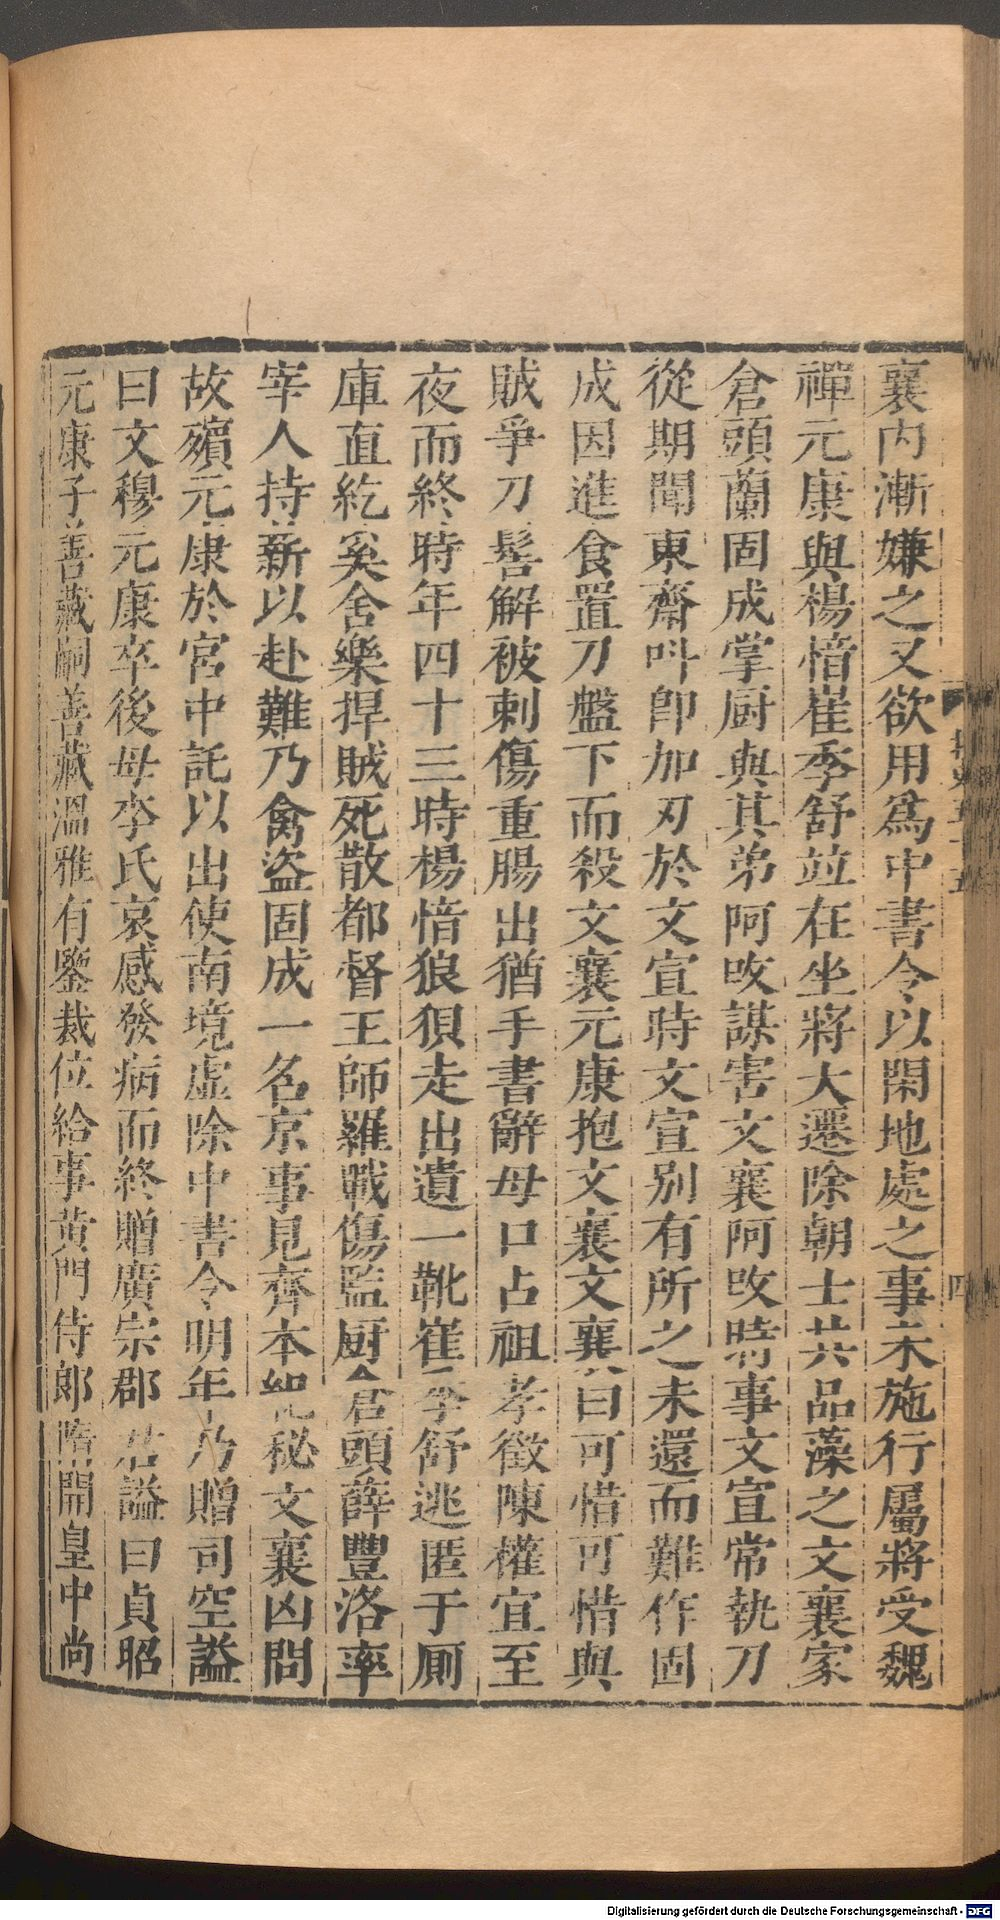 襄内漸嫌之又欲用爲中書令以閑地處之事未施行屬將受魏
禪元康與楊愔崔季舒竝在坐將大遷除朝士共品藻之文襄家
倉頭蘭固成掌厨與其弟阿改謀害文襄阿改時事文宣常執刀
從期聞東齋呌即加刃於文宣時文宣别有所之未還而難作固
成因進食置刀盤下而殺文襄元康抱文襄文襄曰可惜可惜與
賊爭刀髻解被刺傷重腸出猶手書辭母口占祖孝徵陳權宜至
夜而終時年四十三時楊愔狼狽走出遺一靴崔季舒逃匿于厠
庫直紇奚舍樂捍賊死散都督王師羅戰傷監厨倉頭薛豐洛率
宰人持薪以赴難乃禽盜固成一名京事見齊本紀秘文襄凶問
故殯元康於宮中託以出使南境虚除中書令明年乃贈司空謚
曰文穆元康卒後母李氏哀感發病而終贈廣宗郡君謚曰貞昭
元康子善藏嗣善藏溫雅有鑒裁位給事黄門侍郎隋開皇中尚
四
Digitalisierung gefördert durch die Deutsche Forschungsgemeinschaft - DFG